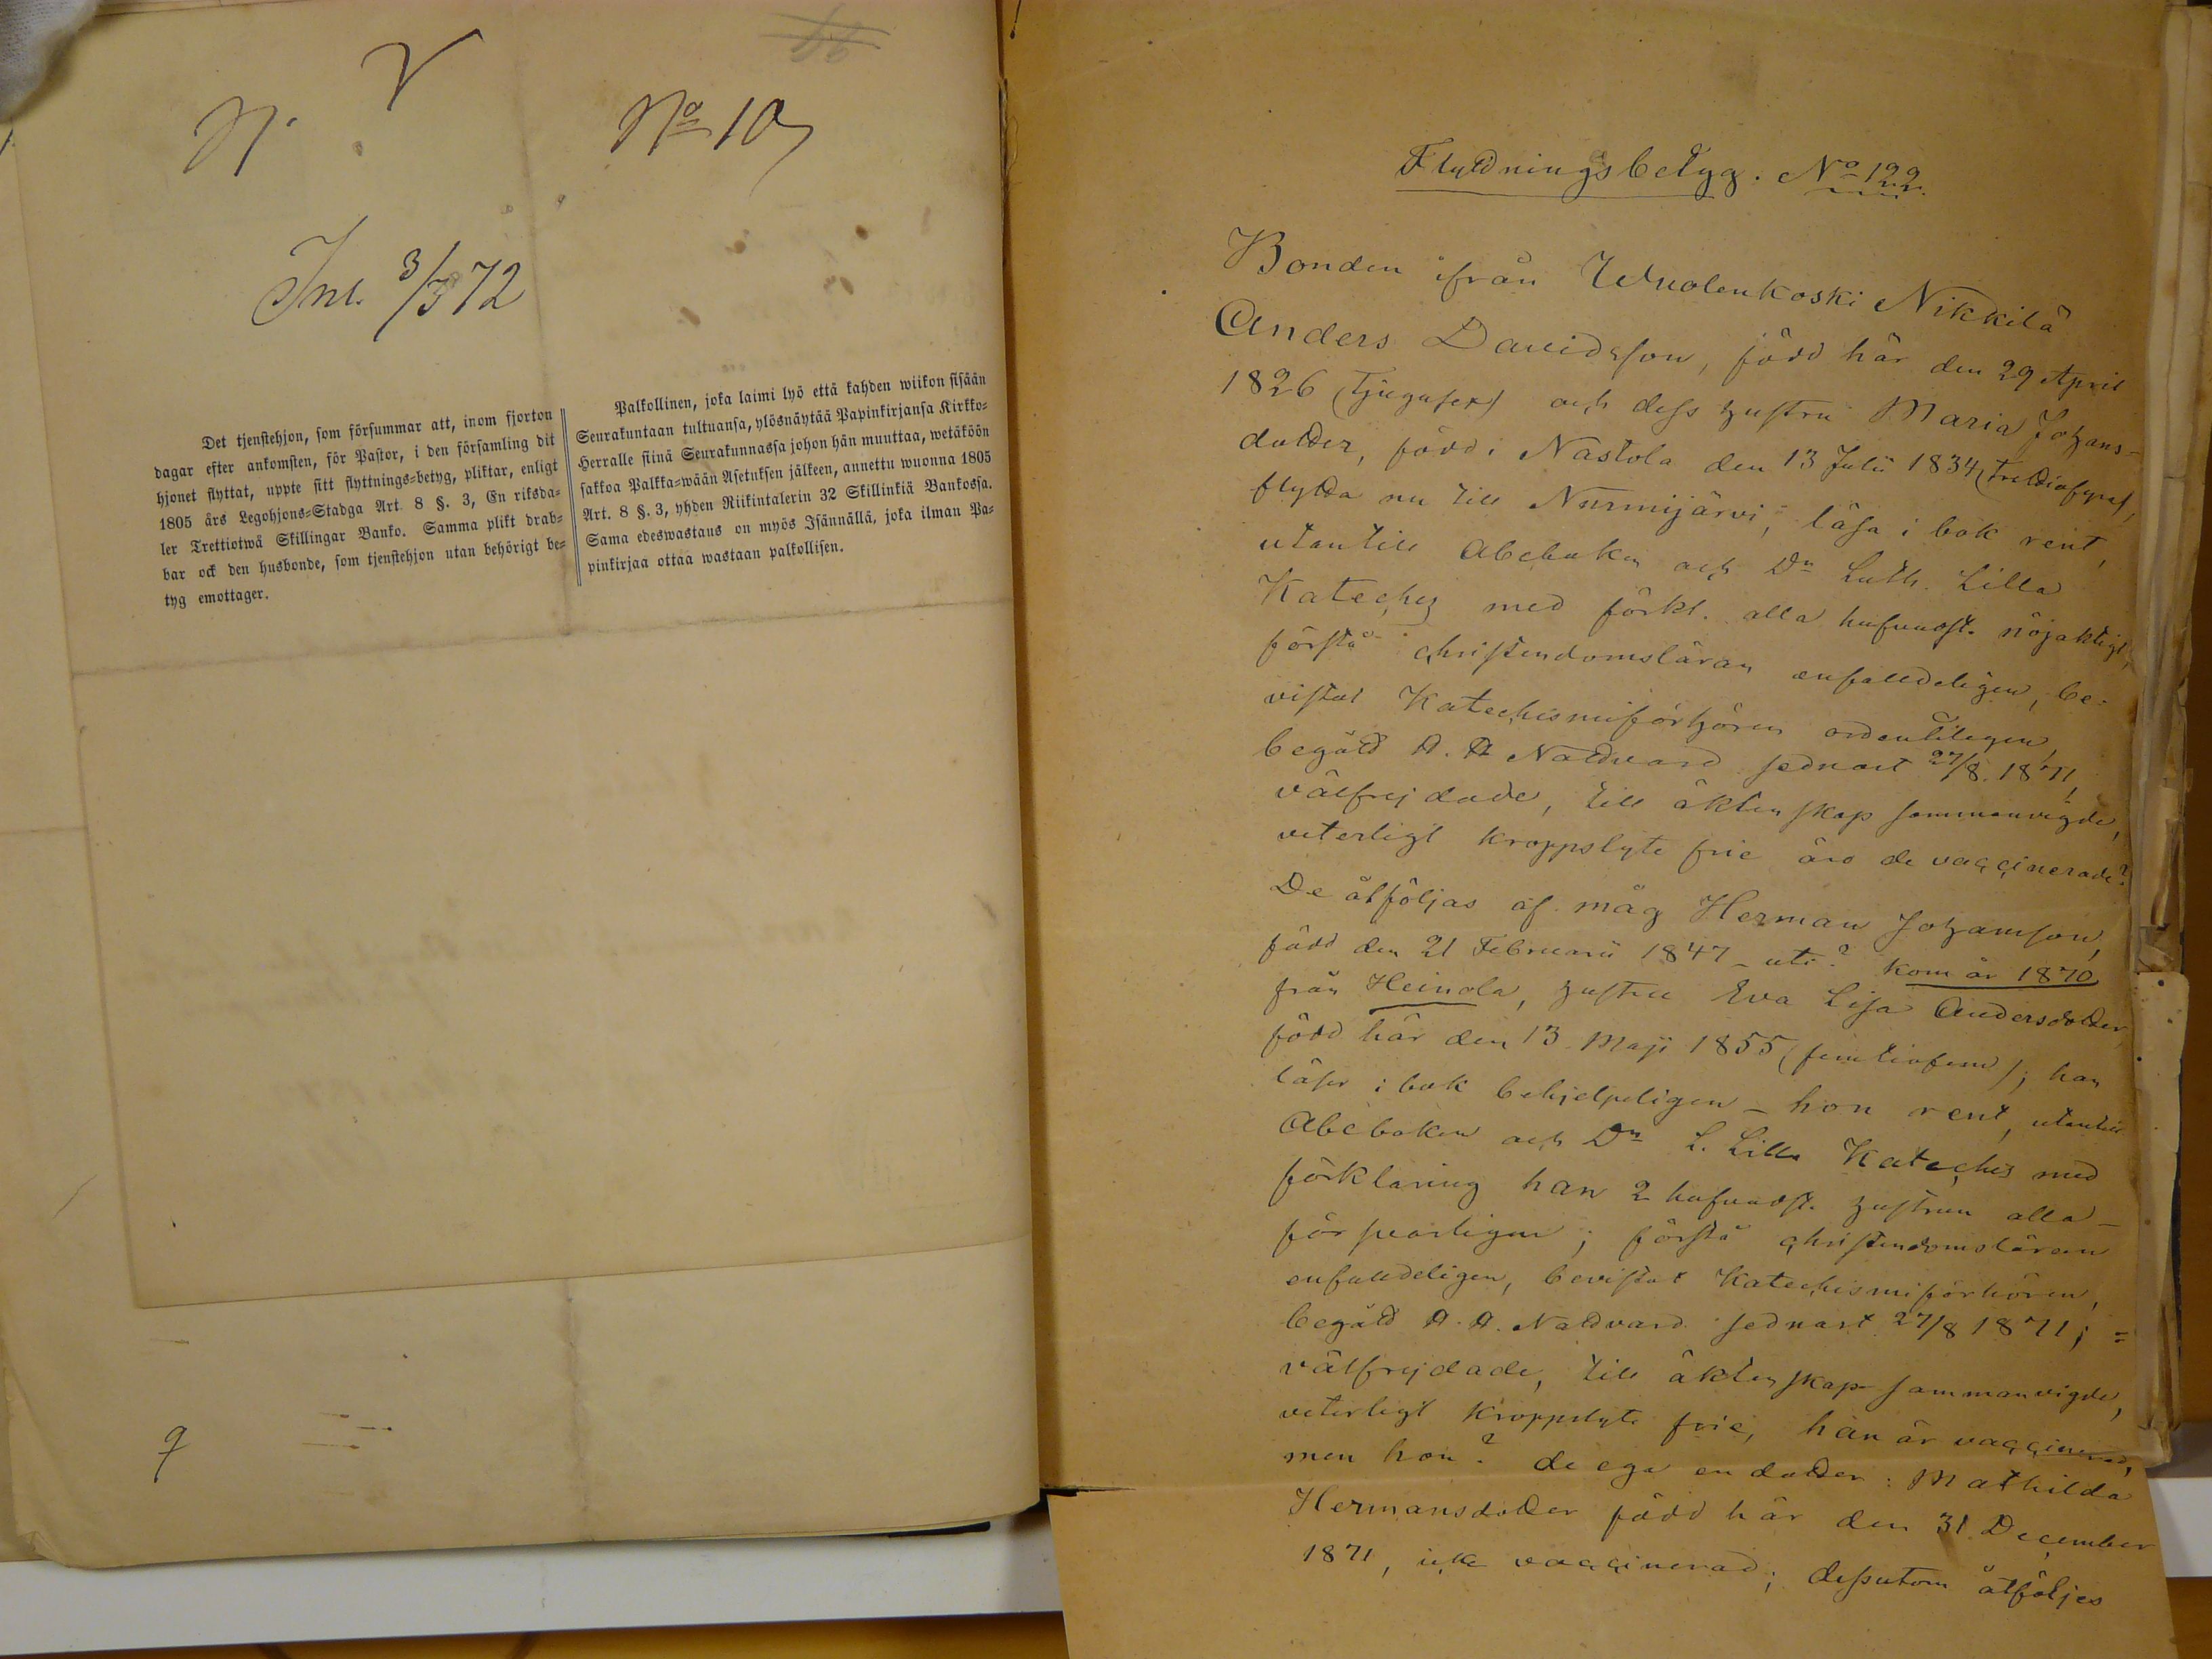 N. V
No 10
Inl. 3/3 72
Det tjenstehjon, som försummar att, inom fjorton
dagar efter ankomsten, för Pastor, i den församling dit
hjonet flyttat, uppte sitt flyttnings-betyg, pliktar, enligt
1805 års Legohjons-Stadga Art. 8 §. 3, En riksda-
ler Trettiotwå Skillingar Banko. Samma plikt drab-
bar ock den husbonde, som tjenstehjon utan behörigt be-
tyg emottager.
Palkollinen, joka laimi lyö että kahden wiikon sisään
Seurakuntaan tultuansa, ylösnäytää Papinkirjansa Kirkko-
Herralle siinä Seurakunnassa johon hän muuttaa, wetäköön
sakkoa Palkka-wään Asetuksen jälkeen, annettu wuonna 1805
Art. 8 §. 3, yhden Riikintalerin 32 Skillinkiä Bankossa.
Sama edeswastaus on myös Isännällä, joka ilman Pa-
pinkirjaa ottaa wastaan palkollisen.
9
Flyttningsbetyg. No 122.
Bonden ifrån Wuolenkoski Nikkilä
Anders Davidsson, född här den 29 April
1826 (tjugusex) och dess hustru Maria Johans-
dotter, född i Nastola den 13 Julii 1834 (trettiofyra),
flytta nu till Nurmijärvi, läsa i bok rent,
utantill Abcboken och Dn Luth. Lilla
Kateches med förkl. alla hufvudst. nöjaktigt,
förstå christendomsläran enfalldeligen, be-
vistat Katechismiförhören ordentligen,
begått H. H. Nattvard sednast 27/8 1871,
välfrejdade, till äktenskap sammanvigde,
veterligt kroppslyte frie äro de vaccinerade?
De åtföljas af måg Herman Johansson,
född den 21 Februarii 1847 – uti? kom år 1870
från Heinola, hustru Eva Lisa Andersdotter
född här den 13 Maji 1855 (femtiofem); han
läser i bok behjelpeligen – hon rent, utantill
Abcboken och Dn L. Lilla Kateches med
förklaring han 2 hufvudst. hustrun alla –
försvarligen; förstå christendomsläran
enfalldeligen, bevistat Katechismiförhören,
begått H. H. Nattvard sednast 27/8 1871; =
välfrejdade, till äktenskap sammanvigde,
veterligt kroppslyte frie, han är vaccinerad,
men hon? de ega en dotter: Mathilda
Hermansdotter född här den 31 December
1871, icke vaccinerad; dessutom åtföljes